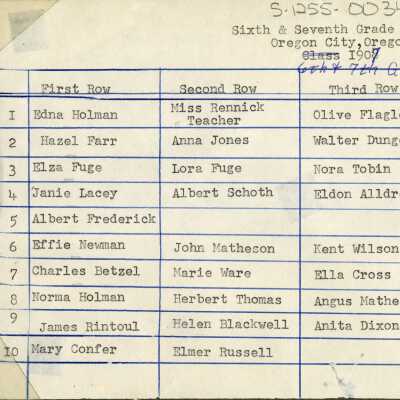 S-1255-003
Sixth & Seventh Grade
Oregon City, Orego
Class 1907
6th & 7th G
First Row Second Row Third Row
1 Edna Holman Miss Rennick Teacher Olive Flagle
2 Hazel Farr Anna Jones Walter Dung
3 Elza Fuge Lora Fuge Nora Tobin
4 Janie Lacey Albert Schoth Eldon Alldr
5 Albert Frederick
6 Effie Newman John Matheson Kent Wilson
7 Charles Betzel Marie Ware Ella Cross
8 Norma Holman Herbert Thomas Angus Mathe
9 James Rintoul Helen Blackwell Anita Dixon
10 Mary Confer Elmer Russell